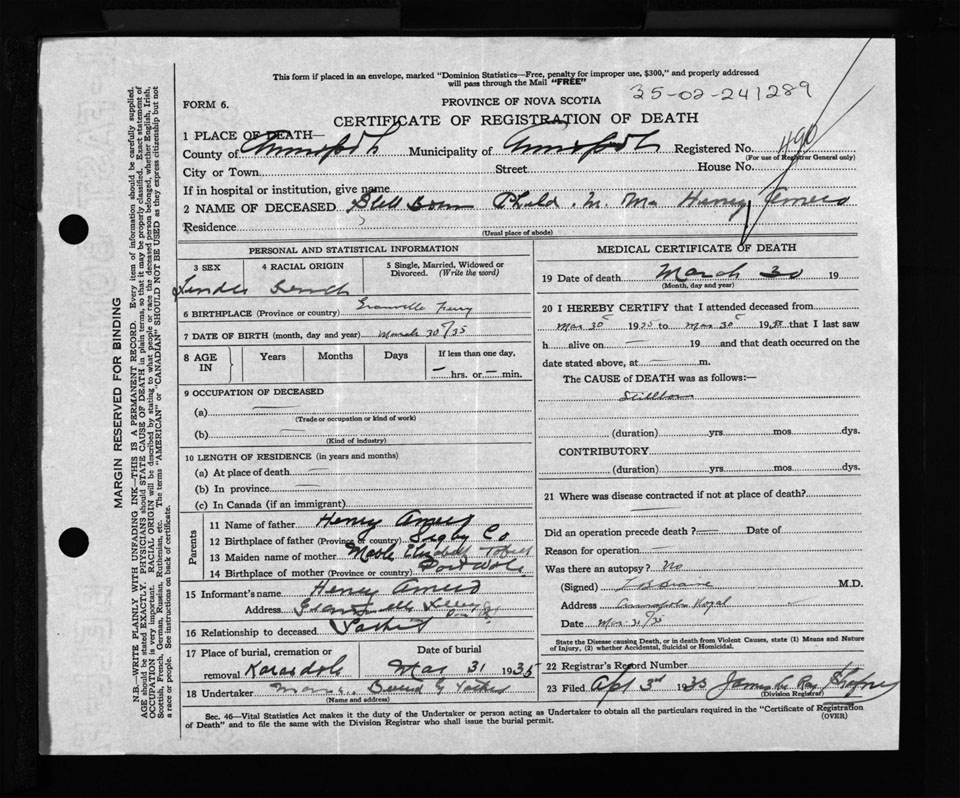 This form if placed in an envelope, marked "Dominion Statistics—Free, penalty for improper use, $300," and properly addressed
will pass through the Mail "FREE"
35-02-241289
FORM 6.
PROVINCE OF NOVA SCOTIA
CERTIFICATE OF REGISTRATION OF DEATH
490
1 PLACE OF DEATH—
County of Municipality of Registered No.
(For use of Registrar General only)
City or Town Street House No.
If in hospital or institution, give name
2 NAME OF DECEASED Still Born Child of Mr. Mrs Henry
Residence
(Usual place of abode)
PERSONAL AND STATISTICAL INFORMATION
3 SEX 4 RACIAL ORIGIN 5 Single, Married, Widowed or
Divorced. (Write the word)
French
6 BIRTHPLACE (Province or country) Granville Ferry
7 DATE OF BIRTH (month, day and year) March 30/35
8 AGE
IN
Years Months Days If less than one day,
— hrs. or — min.
9 OCCUPATION OF DECEASED
(a)
(Trade or occupation or kind of work)
(b)
(Kind of industry)
10 LENGTH OF RESIDENCE (in years and months)
(a) At place of death
(b) In province
(c) In Canada (if an immigrant)
Parents
11 Name of father Henry
12 Birthplace of father (Province or country) Digby Co
13 Maiden name of mother Elizabeth
14 Birthplace of mother (Province or country)
15 Informant's name Henry
Address
16 Relationship to deceased Father
17 Place of burial, cremation or
removal Karsdale
Date of burial
Mar 31 1935
18 Undertaker
(Name and address)
MEDICAL CERTIFICATE OF DEATH
19 Date of death March 30 19
(Month, day and year)
20 I HEREBY CERTIFY that I attended deceased from
Mar 30 1935 to Mar 30 1935 that I last saw
h alive on — 19 and that death occurred on the
date stated above, at — m.
The CAUSE of DEATH was as follows:—
Stillborn
(duration) yrs. mos. dys.
CONTRIBUTORY
(duration) yrs. mos. dys.
21 Where was disease contracted if not at place of death?
Did an operation precede death? — Date of
Reason for operation —
Was there an autopsy? No
(Signed) M.D.
Address Annapolis Royal
Date Mar 31/35
State the Disease causing Death, or in death from Violent Causes, state (1) Means and Nature
of Injury, (2) whether Accidental, Suicidal or Homicidal.
22 Registrar's Record Number
23 Filed Apl 3rd 1935 James
(Division Registrar)
Sec. 46—Vital Statistics Act makes it the duty of the Undertaker or person acting as Undertaker to obtain all the particulars required in the "Certificate of Registration
of Death" and to file the same with the Division Registrar who shall issue the burial permit.
(OVER)
MARGIN RESERVED FOR BINDING
N.B.—WRITE PLAINLY WITH UNFADING INK—THIS IS A PERMANENT RECORD. Every item of information should be carefully supplied.
AGE should be stated EXACTLY. PHYSICIANS should STATE CAUSE OF DEATH in plain terms, so that it may be properly classified. Exact statement of
OCCUPATION is very important. RACIAL ORIGIN will be described by stating to what people or race the deceased person belonged, whether English, Irish,
Scottish, French, German, Russian, Ruthenian, etc. The terms "AMERICAN" or "CANADIAN" SHOULD NOT BE USED as they express citizenship but not
a race or people. See instructions on back of certificate.